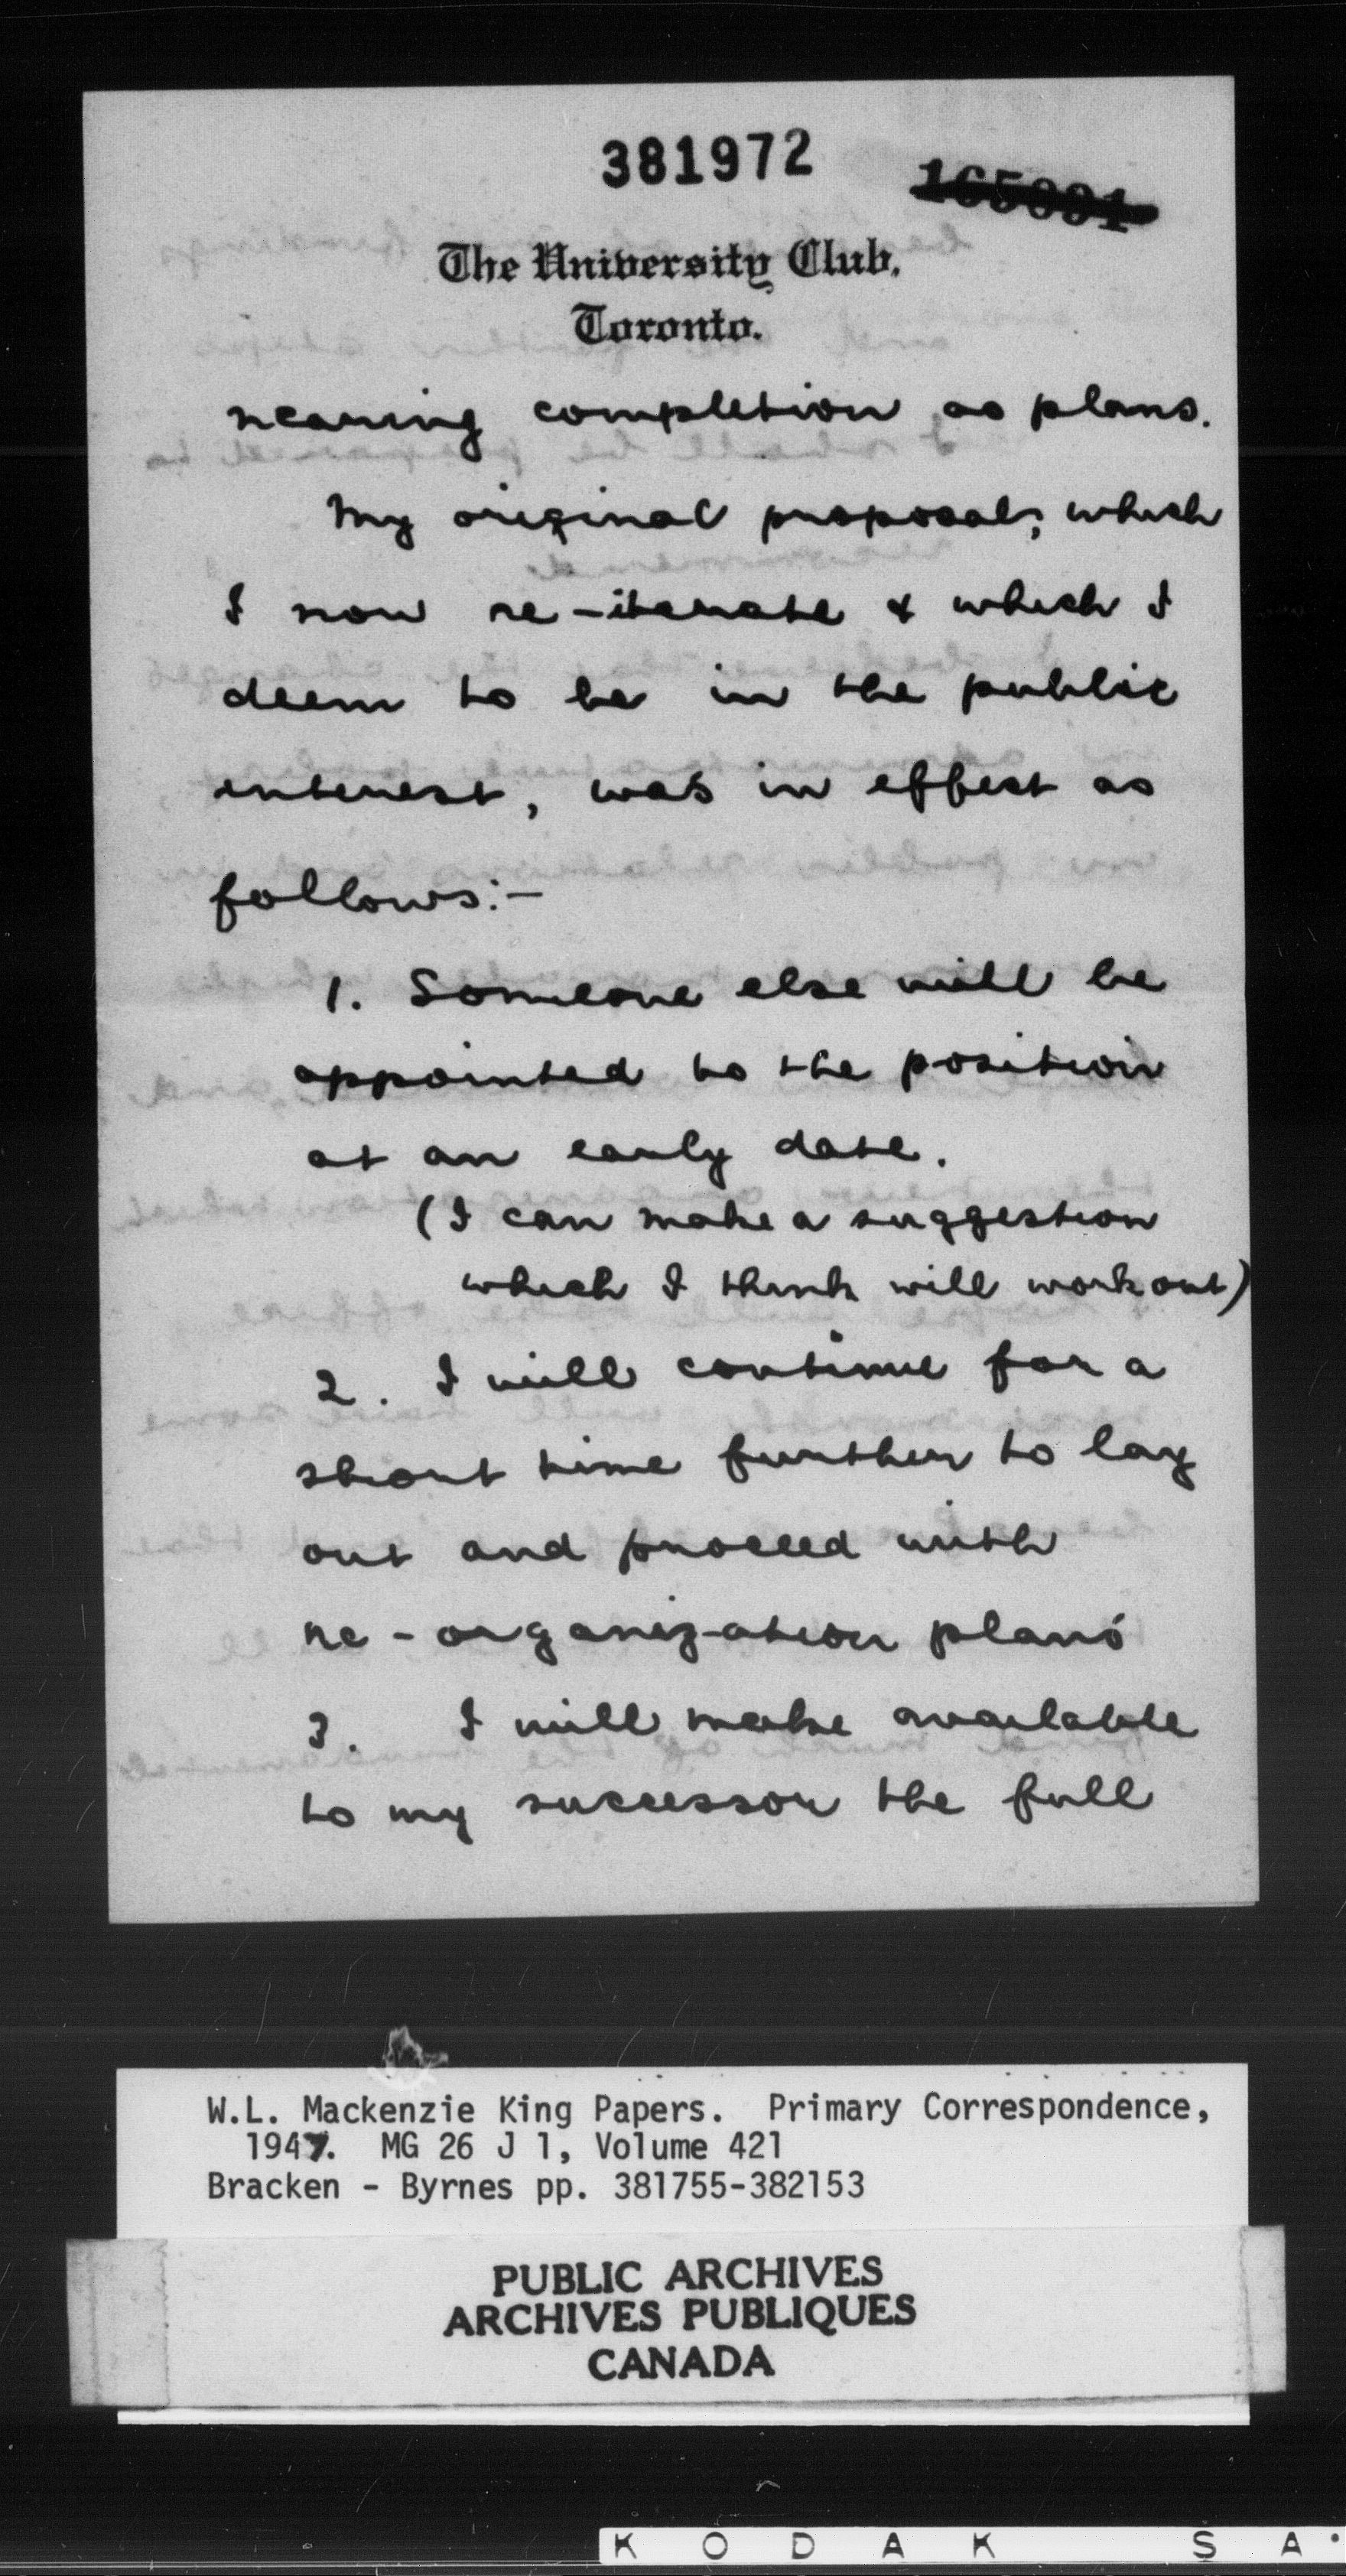 381972
The University Club,
Toronto.
nearing completion as plans.
My original proposal, which
I now re-iterate & which I
deem to be in the public
interest, was in effect as
follows:-
1. Someone else will be
appointed to the position
at an early date.
(I can make a suggestion
which I think will work out)
2. I will continue for a
short time further to lay
out and proceed with
re-organization plans
3. I will make available
to my successor the full
W.L. Mackenzie King Papers. Primary Correspondence,
1947. MG 26 J 1, Volume 421
Bracken - Byrnes pp. 381755-382153
PUBLIC ARCHIVES
ARCHIVES PUBLIQUES
CANADA
KODAK SA